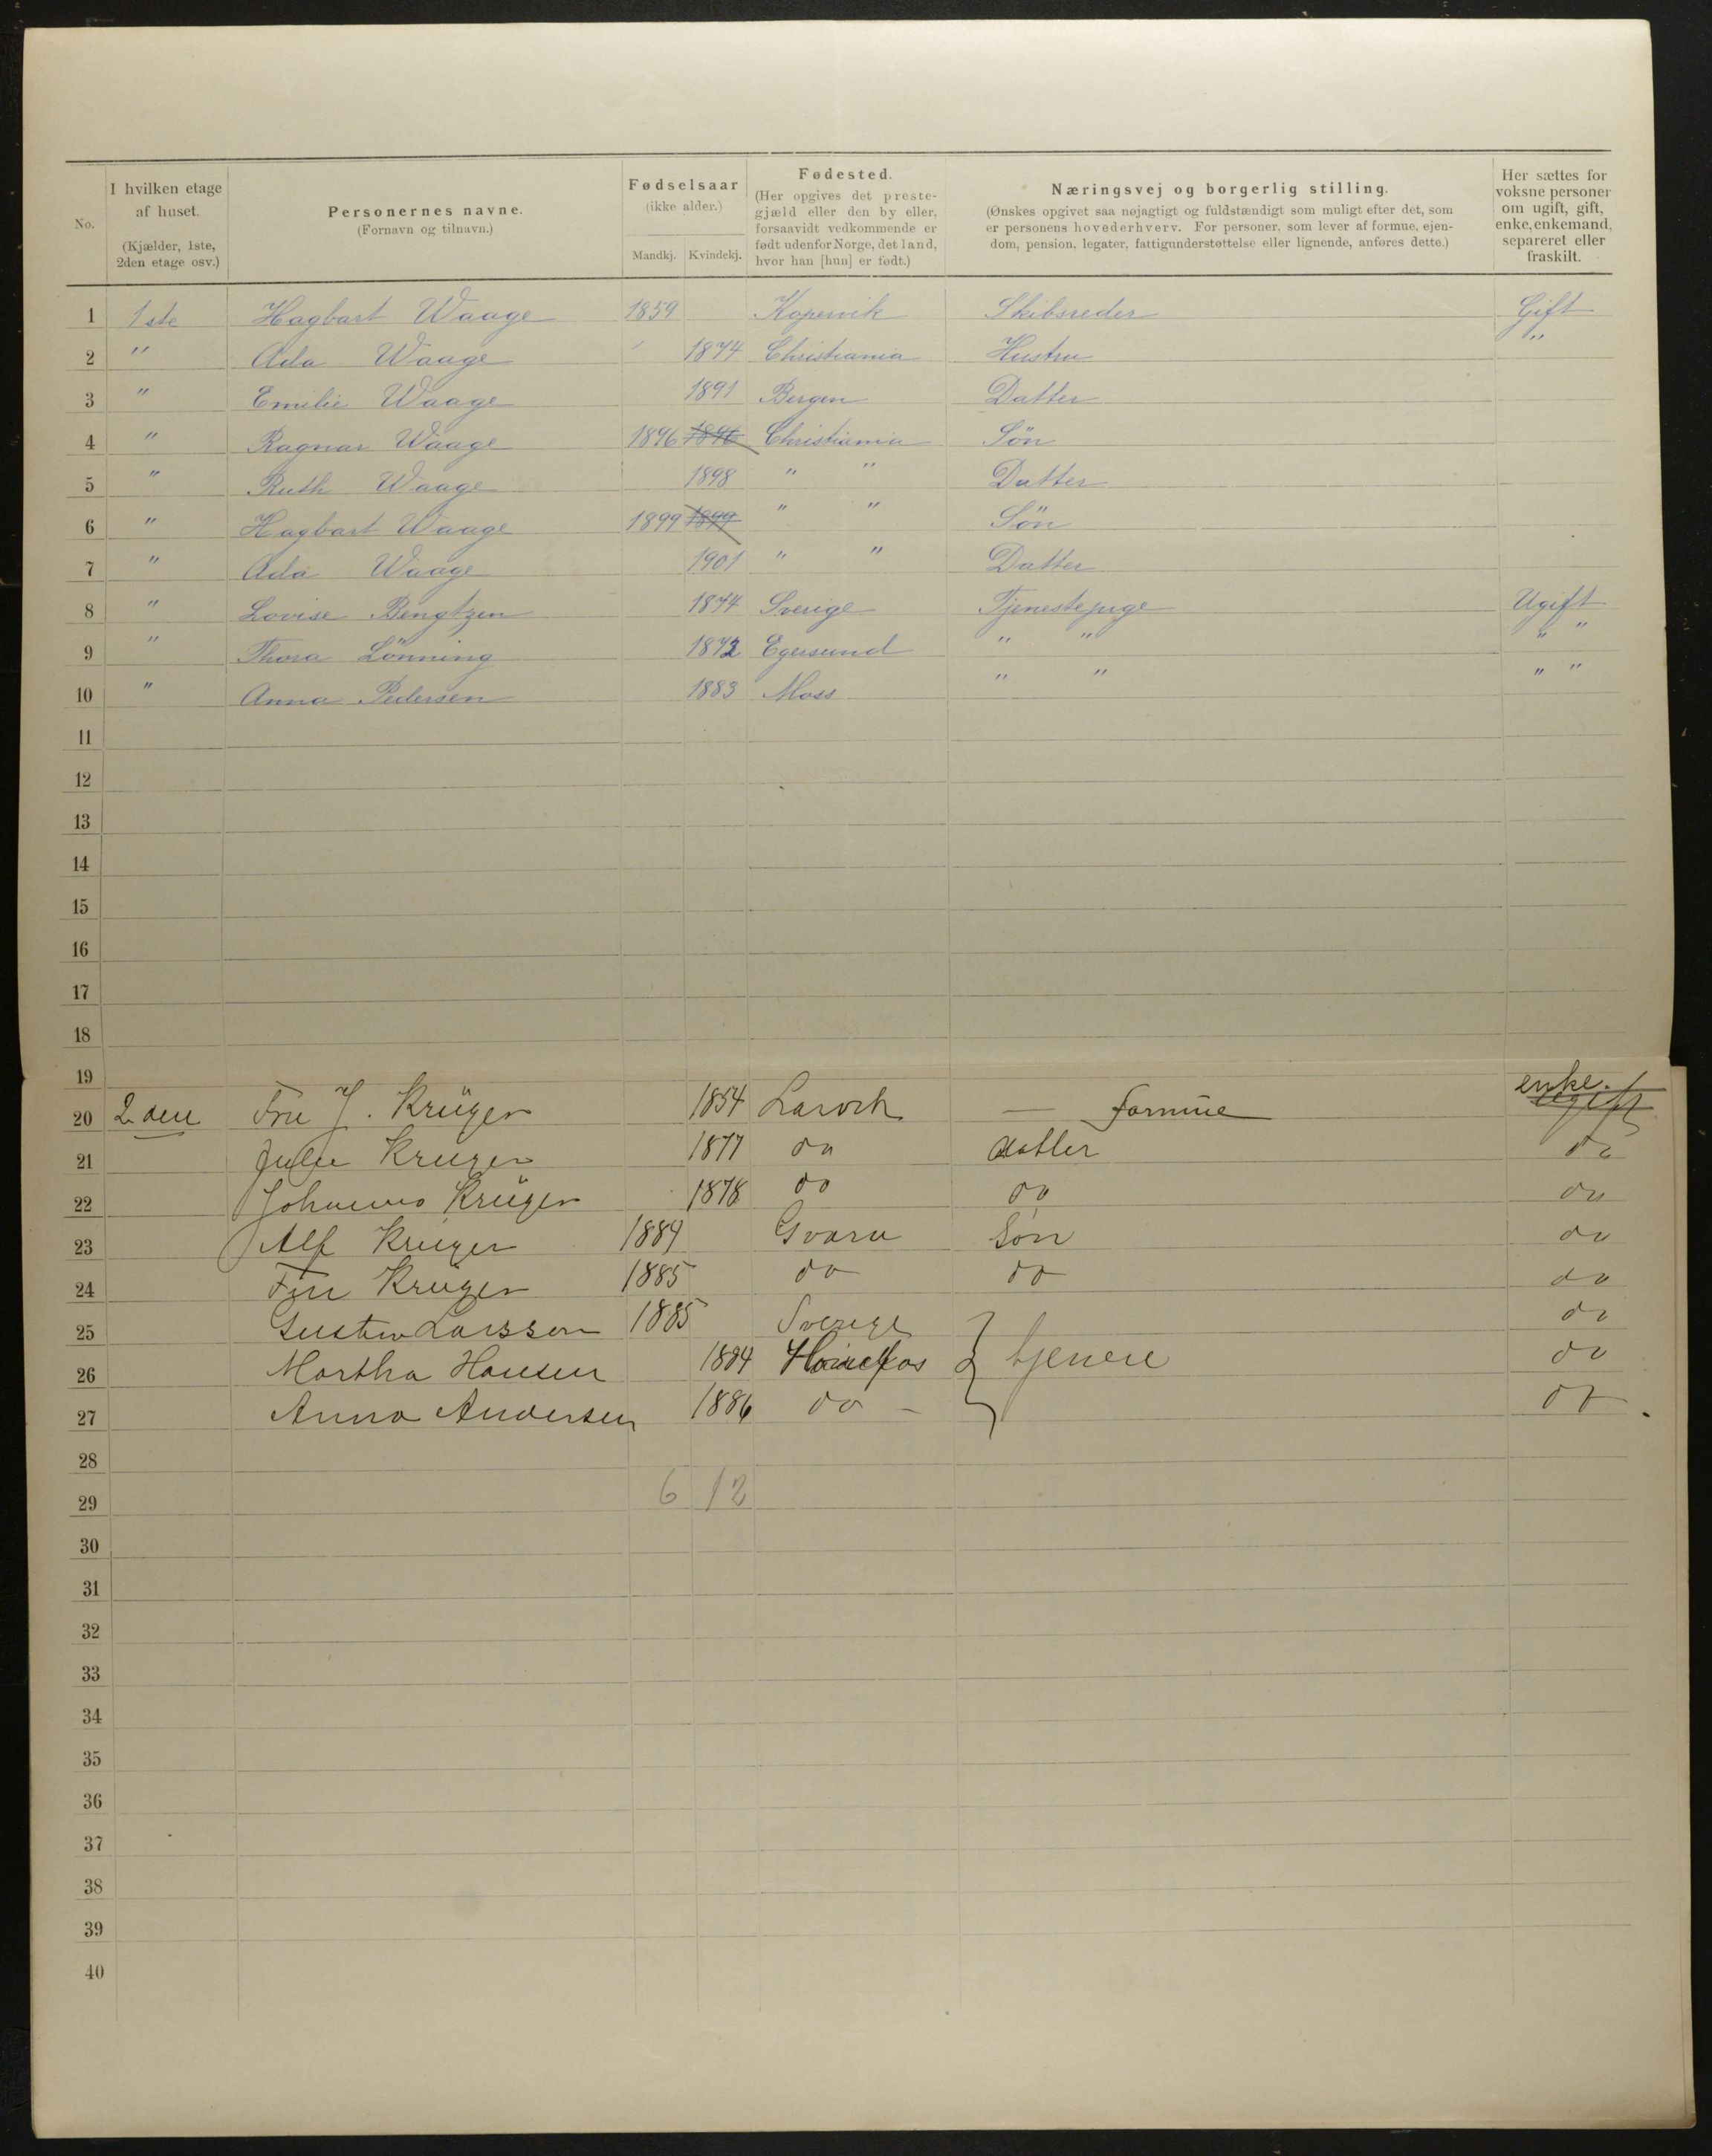 No.
I hvilken etage af huset.
(Kjælder, 1ste, 2den etage osv.)
Personernes navne.
(Fornavn og tilnavn.)
Fødselsaar
(ikke alder.)
Mandkj. Kvindekj.
Fødested.
(Her opgives det prestegjæld eller den by eller, forsaavidt vedkommende er født udenfor Norge, det land, hvor han [hun] er født.)
Næringsvej og borgerlig stilling.
(Ønskes opgivet saa nøjagtigt og fuldstændigt som muligt efter det, som er personens hovederhverv. For personer, som lever af formue, ejendom, pension, legater, fattigunderstøttelse eller lignende, anføres dette.)
Her sættes for voksne personer om ugift, gift, enke, enkemand, separeret eller fraskilt.
1 1ste Hagbart Waage 1859 Kopervik Skibsreder Gift
2 " Ada Waage 1874 Christiania Hustru "
3 " Emilie Waage 1891 Bergen Datter
4 " Ragnar Waage 1896 1896 Christiania Sön
5 " Ruth Waage 1898 " " Datter
6 " Hagbart Waage 1899 1899 " " Sön
7 " Ada Waage 1901 " " Datter
8 " Lovise Bengtzen 1874 Sverige Tjenestepige Ugift
9 " Thora Lönning 1872 Egersund " " " "
10 " Anna Pedersen 1883 Moss " " " "
11
12
13
14
15
16
17
18
19
20 2den Fru J. Krüger 1854 Larvik — formue enke. Ugift
21 Julie Krüger 1877 do datter do
22 Krüger 1878 do do do
23 Alf Krüger 1884 Søn do
24 Krüger 1885 do do do
25 Gustav Larsson 1885 Sverige do
26 Martha Hansen 1884 Hønefos } tjenere do
27 Anna Andersen 1886 do – do
28
29 6 12
30
31
32
33
34
35
36
37
38
39
40